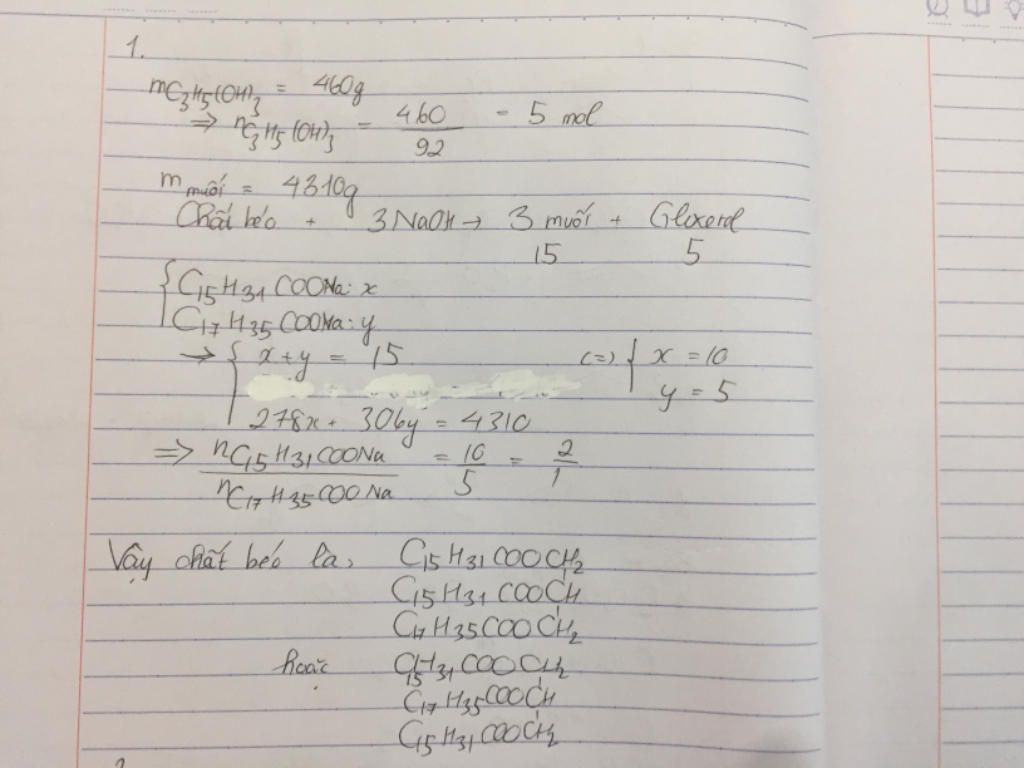 1.
mC3H5(OH)3 = 460g
=> nC3H5(OH)3 = 460/92 = 5 mol
m muối = 4310g
Chất béo + 3NaOH → 3 muối + Glixerol
15 5
{ C15H31COONa: x
C17H35COONa: y
→ { x+y = 15 (=) { x = 10
y = 5
278x + 306y = 4310
=> nC15H31COONa / nC17H35COONa = 10/5 = 2/1
Vậy chất béo là, C15H31COOCH2
C15H31COOCH
C17H35COOCH2
hoặc C15H31COOCH2
C17H35COOCH
C15H31COOCH2